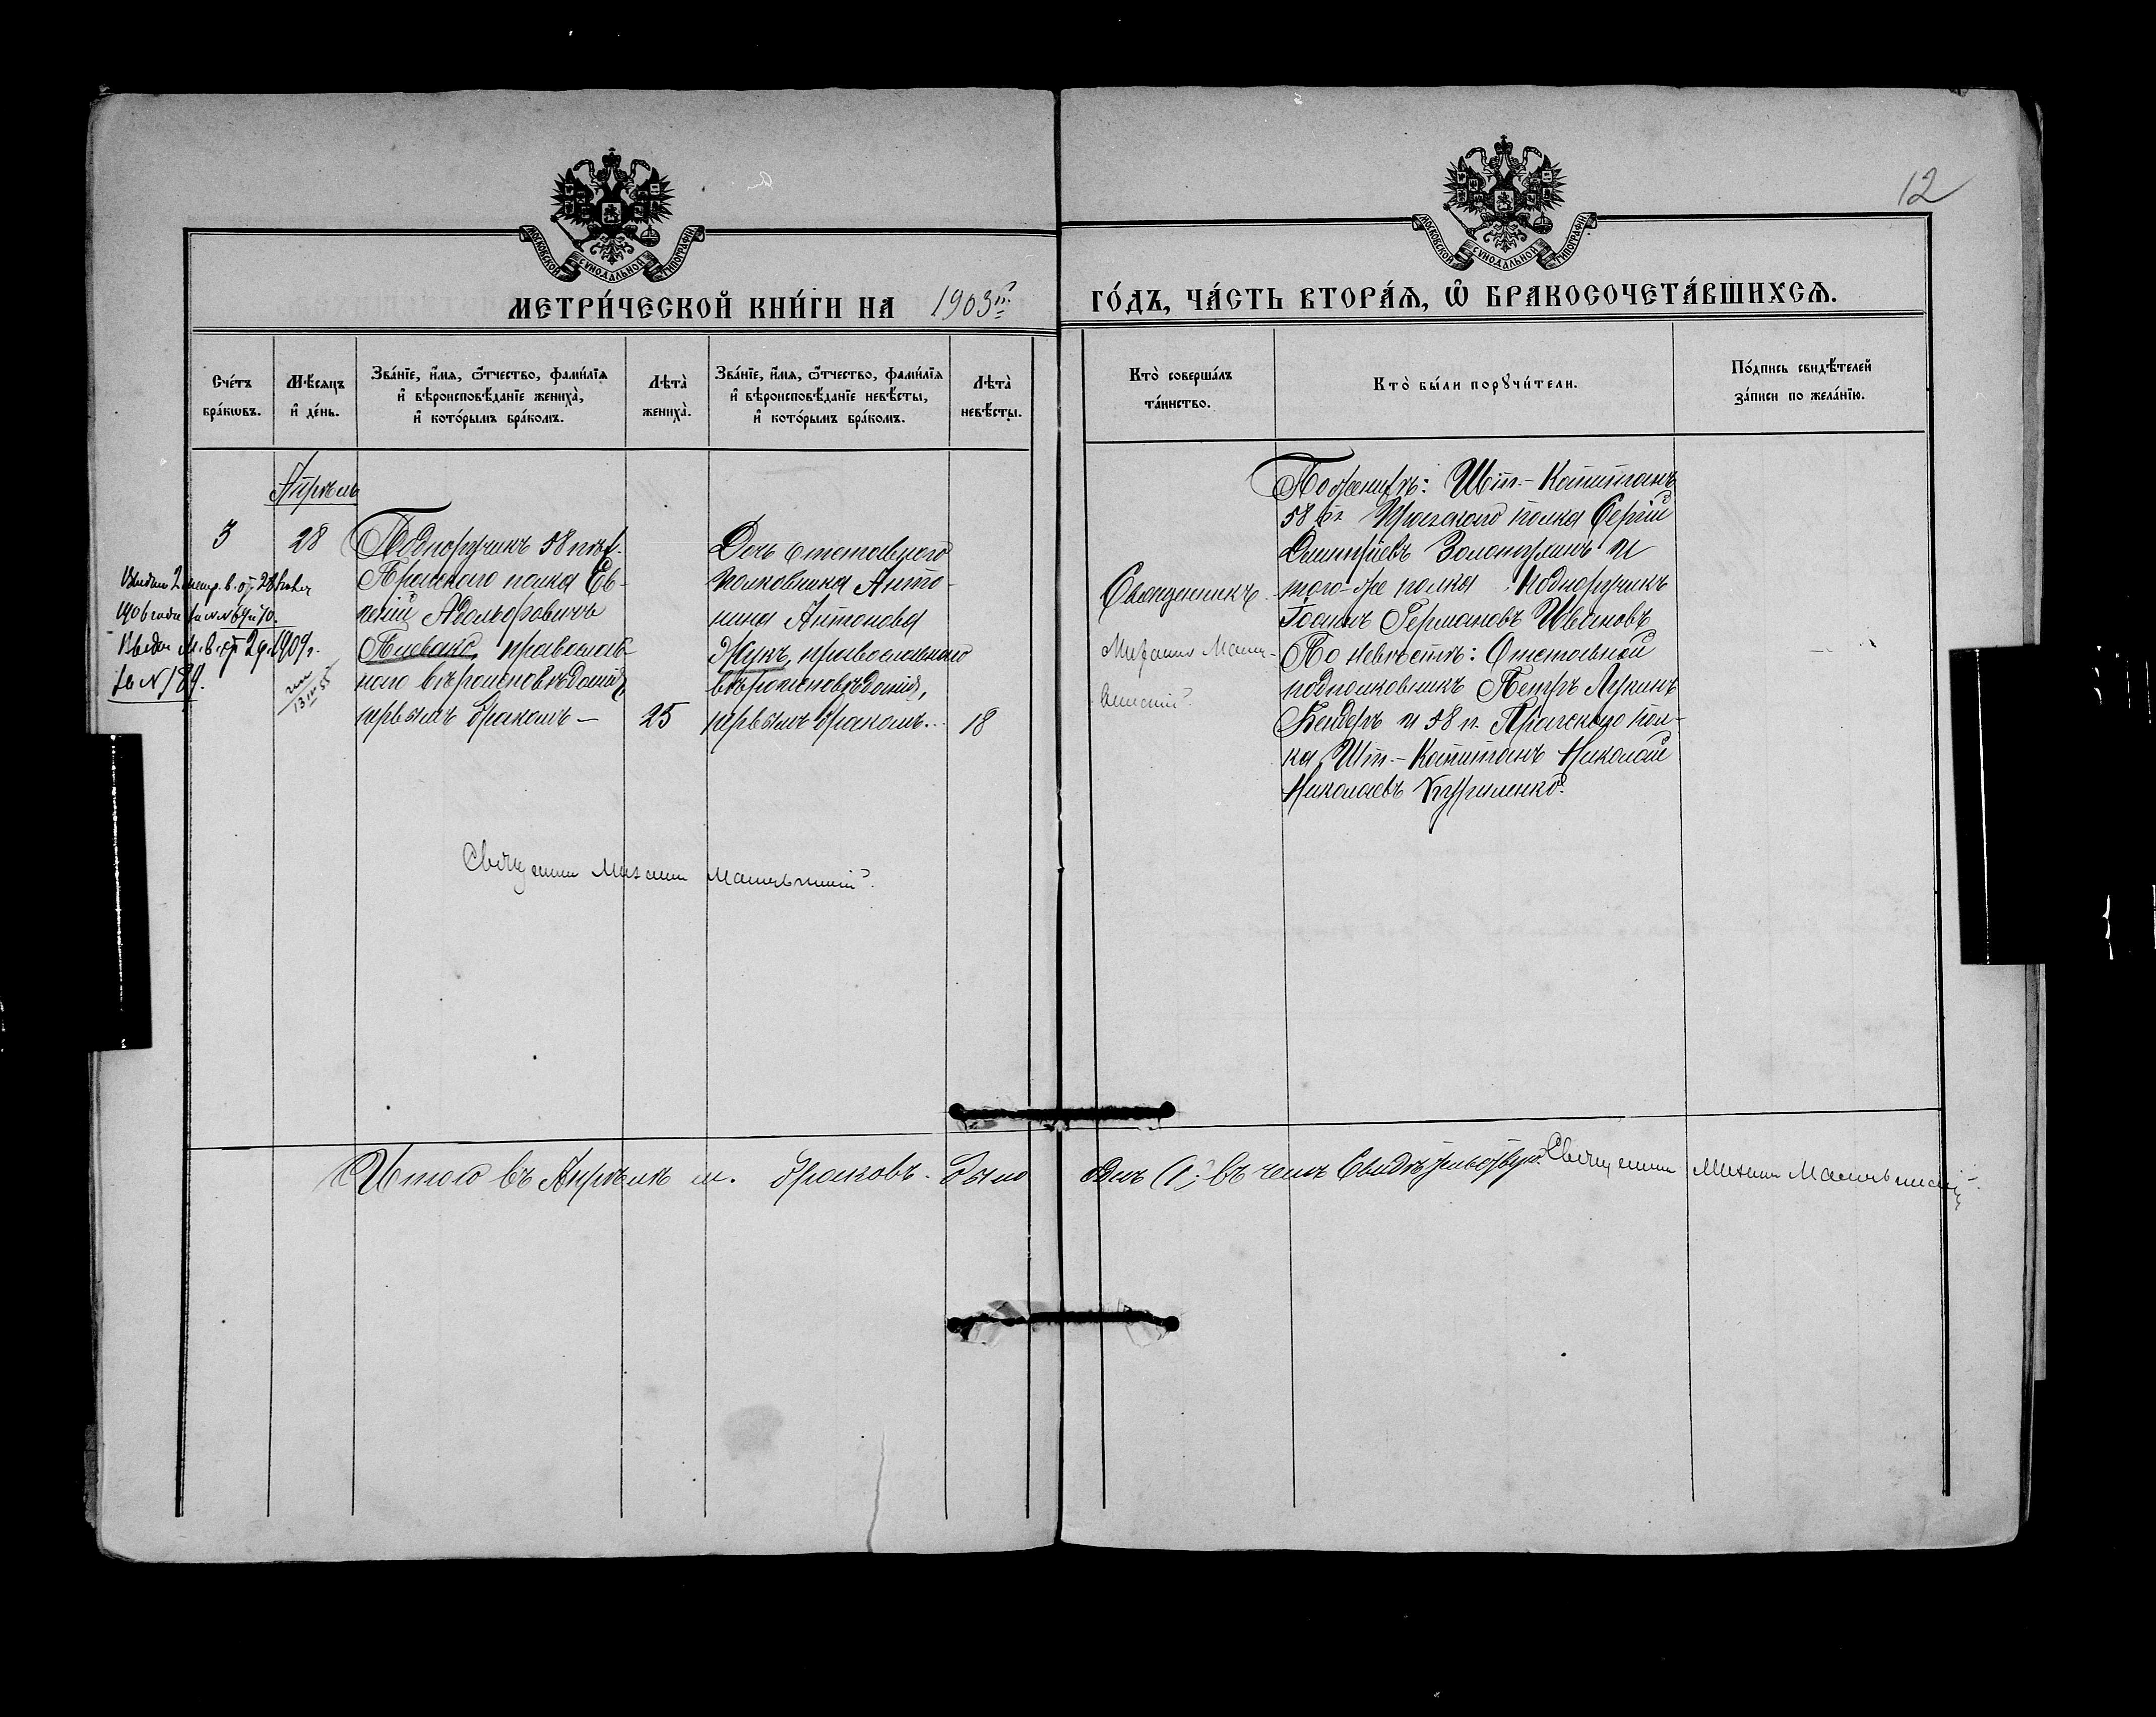 12
МОСКОВСКОЙ СѴНОДАЛЬНОЙ ТИПОГРАФІИ
МОСКОВСКОЙ СѴНОДАЛЬНОЙ ТИПОГРАФІИ
МЕТРИ́ЧЕСКОЙ КНИ́ГИ НА 1903й
ГО́ДЪ, ЧА́СТЬ ВТОРА́Ѧ, Ѽ БРАКОСОЧЕТА́ВШИХСѦ.
Сче́тъ
бра́кѡвъ.
Мѣ́сяцъ
и҆ де́нь.
Зва́нїе, и҆́мя, ѻ҆́тчество, фами́лїя
и҆ вѣроисповѣ́данїе жениха̀,
и҆ кото́рымъ бра́комъ.
Лѣта̀
жениха̀.
Зва́нїе, и҆́мя, ѻ҆́тчество, фами́лїя
и҆ вѣроисповѣ́данїе невѣ́сты,
и҆ кото́рымъ бра́комъ.
Лѣта̀
невѣ́сты.
Кто̀ соверша́лъ
та́инство.
Кто̀ бы́ли порꙋчи́тели.
По́дпись свидѣ́телей
за́писи по жела́нїю.
Апрѣль
3
28
Подпоручикъ 58 пѣх.
Прагскаго полка Ев-
геній Адольфовичъ
Плевако, православ-
наго вѣроисповѣданія,
первымъ бракомъ —
25
Дочь отставного
полковника Анто-
нина Антонова
Жукъ, православнаго
вѣроисповѣданія,
первымъ бракомъ.
18
1906 года за №№ 69 и 70.
1909г.
за № 189.
13 IV 55
Священникъ
Михаилъ
Поженихѣ: Шт.-Капитанъ
58 п. Прагскаго полка Сергій
Дмитріевъ и
того-же полка Подпоручикъ
Іоаннъ Германовъ Ивановъ
По невѣстѣ: Отставной
подполковникъ Петръ Лукинъ
Бендеръ и 58 п. Прагскаго пол-
ка Шт.-Капитанъ Николай
Николаевъ
Священникъ Михаилъ
Итого въ Апрѣлѣ м. браковъ было
одинъ (1), въ чемъ свидѣтельствую. Священникъ Михаилъ